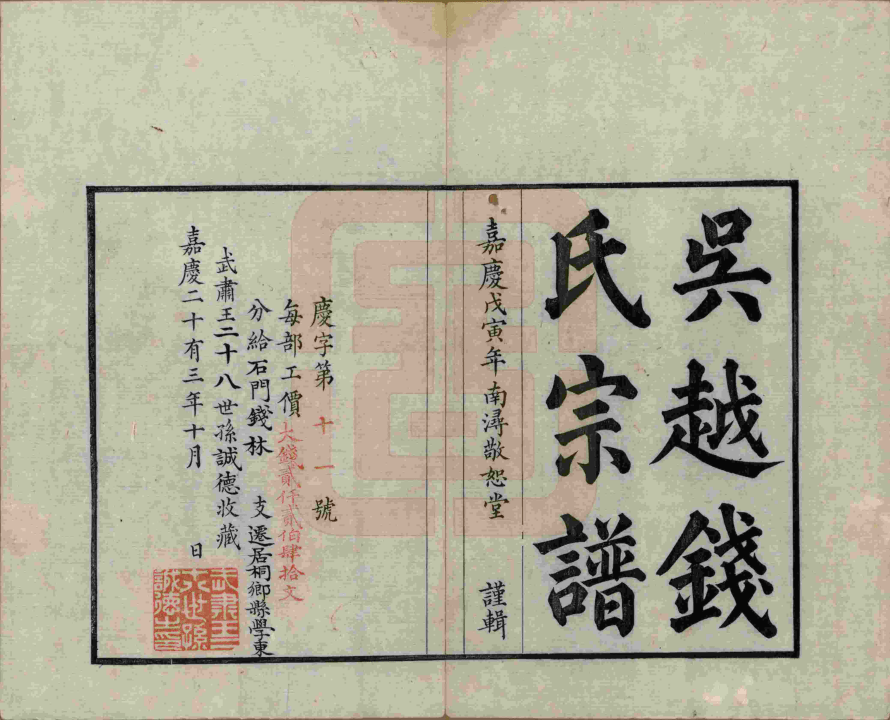 吳越錢
氏宗譜
嘉慶戊寅年南潯敬恕堂 謹輯
慶字第十一號
每部工價大錢貳仟貳伯肆拾文
分給石門錢林 支遷居桐鄉縣學東
武肅王二十八世孫誠德收藏
嘉慶二十有三年十月 日